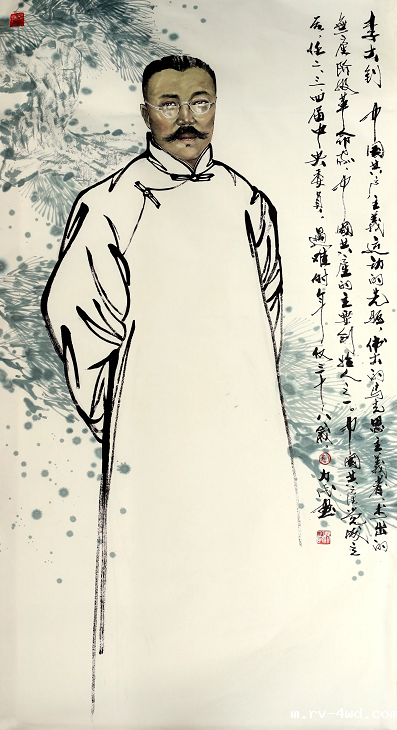 李大钊 中國共产主義运动的先驱，偉大的马克思主義者，杰出的
無產阶级革命家。中國共產的主要创始人之一。中國共產党成立
后，任二、三、四届中央委員，遇难时年仅三十八歲
m.rv-4wd.com